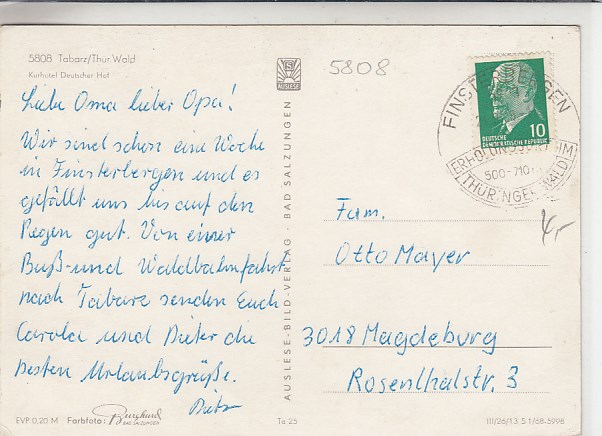 5808 Tabarz/Thür Wald
Kurhotel Deutscher Hof
Liebe Oma lieber Opa!
Wir sind schon eine Woche
in Finsterbergen und es
gefällt uns bis auf den
Regen gut. Von einer
Buß- und Waldbahnfahrt
nach Tabarz senden Euch
Carola und Dieter die
besten Urlaubsgrüße.
EVP 0,20 M Farbfoto: Burghard
BAD SALZUNGEN
AUSLESE
AUSLESE-BILD-VERLAG · BAD SALZUNGEN
Ta 25
5808
FINSTERBERGEN
DEUTSCHE
DEMOKRATISCHE REPUBLIK
10
ERHOLUNGSORT IM
THÜRINGER WALD
Fam.
Otto Mayer
3018 Magdeburg
Rosenthalstr. 3
4,-
III/26/13 S 1/68-5998